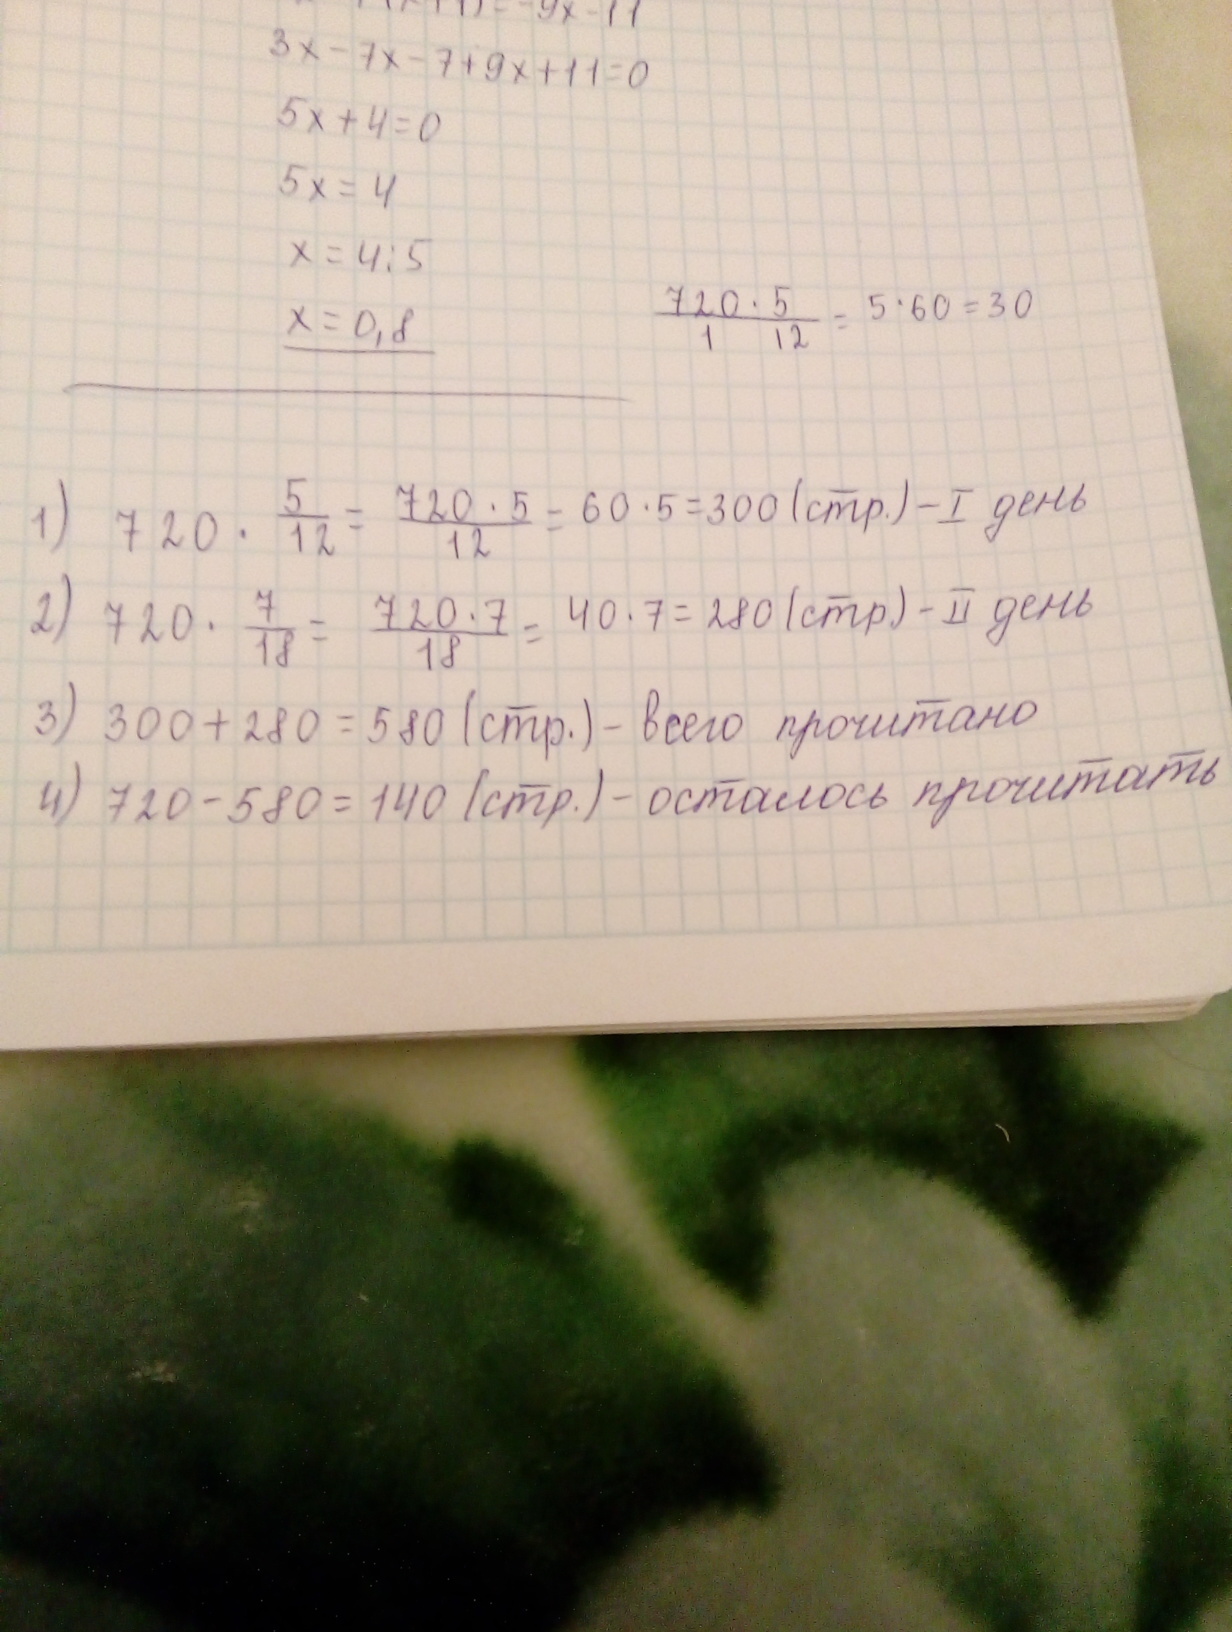 (x+1)=-9x-11
3x-7x-7+9x+11=0
5x+4=0
5x=4
x=4:5
x=0,8
720·5/1 12=5·60=30
1) 720·5/12=720·5/12=60·5=300(стр.)-I день
2) 720·7/18=720·7/18=40·7=280(стр)-II день
3) 300+280=580(стр.)-всего прочитано
4) 720-580=140(стр.)-осталось прочитать